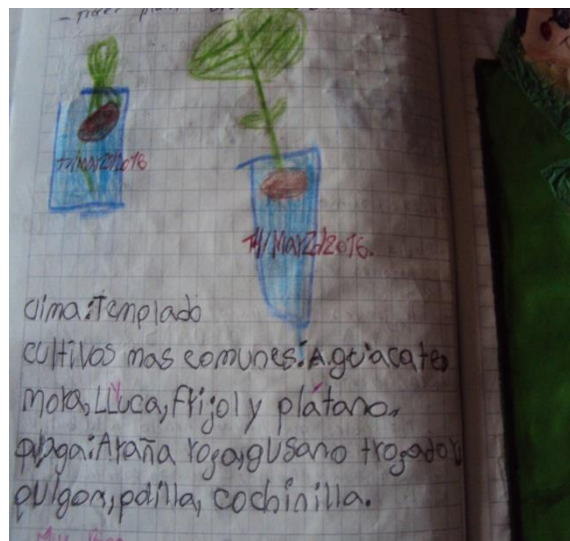 14/Marzo/2016.
clima:Templado
cultivos mas comunes:Aguacate,
mora, LLuca, frijol y plátano.
plaga:Araña roja, gusano trogador,
pulgon, polilla, cochinilla.